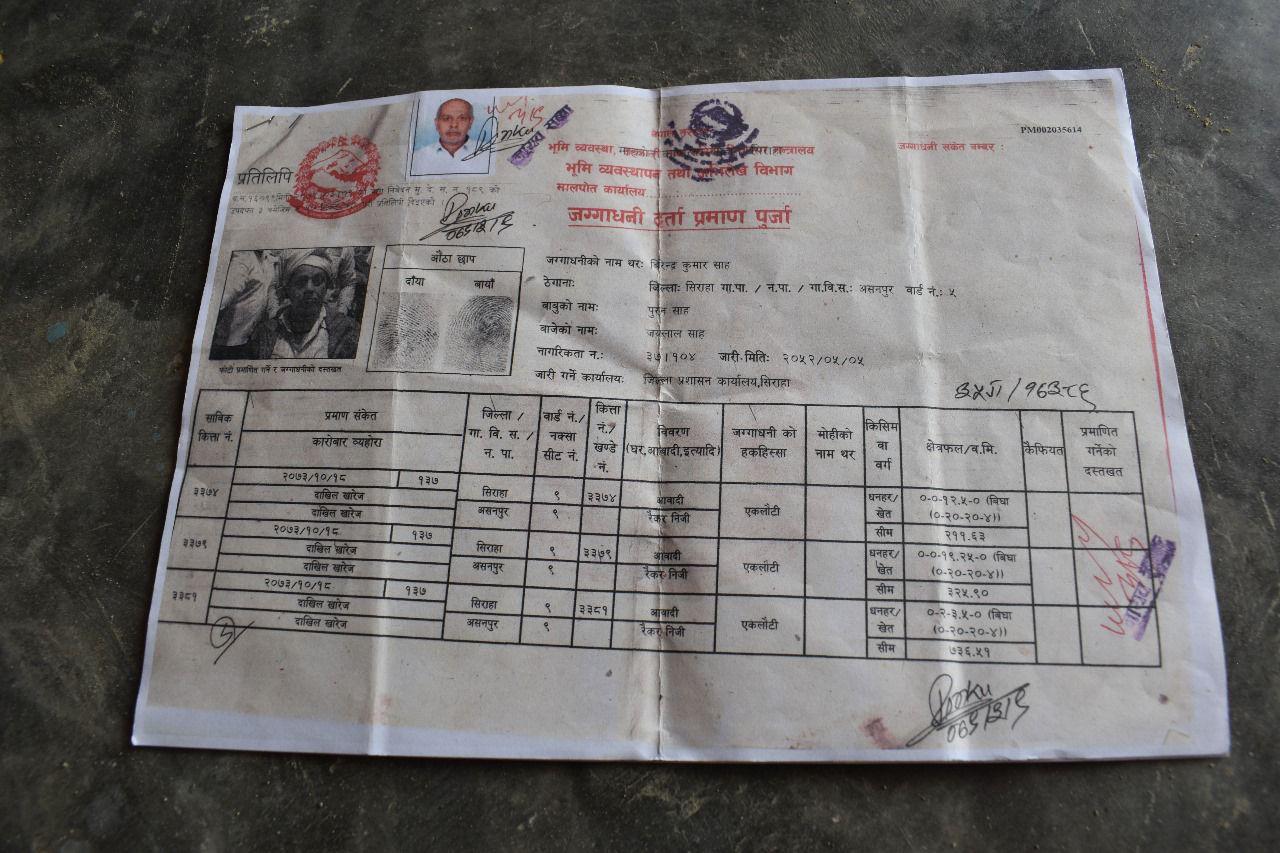 PM002035614
प्रतिलिपि
भूमि व्यवस्था,
जग्गाधनी संकेत नम्बर :
भूमि व्यवस्थापन तथा अभिलेख विभाग
मालपोत कार्यालय
जग्गाधनी दर्ता प्रमाण पुर्जा
औंठा छाप
दायाँ बायाँ
जग्गाधनीको नाम थर: बिरेन्द्र कुमार साह
ठेगाना: जिल्ला: सिराहा गा.पा. / न.पा. / गा.वि.स.: असनपुर वार्ड नं.: ५
बाबुको नाम: पुरन साह
बाजेको नाम: जयलाल साह
नागरिकता न.: ३७।१०४ जारी मिति: २०५२/०५/०५
जारी गर्ने कार्यालय: जिल्ला प्रशासन कार्यालय,सिराहा
फोटो प्रमाणित गर्ने र जग्गाधनीको दस्तखत
साबिक कित्ता नं. प्रमाण संकेत जिल्ला / गा. वि. स. / न. पा. वार्ड नं./ नक्सा सीट नं. कित्ता नं./ खण्डे नं. विवरण (घर,आवादी,इत्यादि) जग्गाधनी को हकहिस्सा मोहीको नाम थर किसिम वा वर्ग क्षेत्रफल/व.मि. कैफियत प्रमाणित गर्नेको दस्तखत
कारोबार व्यहोरा
३३७४ २०७३/१०/१८ १३७ सिराहा ९ ३३७४ आवादी एकलौटी धनहर/ खेत ०-०-१२.५-० (बिघा (०-२०-२०-४))
दाखिल खारेज असनपुर ९ रैकर निजी सीम २११.६३
दाखिल खारेज
३३७९ २०७३/१०/१८ १३७ सिराहा ९ ३३७९ आवादी एकलौटी धनहर/ खेत ०-०-१९.२५-० (बिघा (०-२०-२०-४))
दाखिल खारेज असनपुर ९ रैकर निजी सीम ३२५.९०
दाखिल खारेज
३३८१ २०७३/१०/१८ १३७ सिराहा ९ ३३८१ आवादी एकलौटी धनहर/ खेत ०-२-३.५-० (बिघा (०-२०-२०-४))
दाखिल खारेज असनपुर ९ रैकर निजी सीम ७३६.५१
दाखिल खारेज